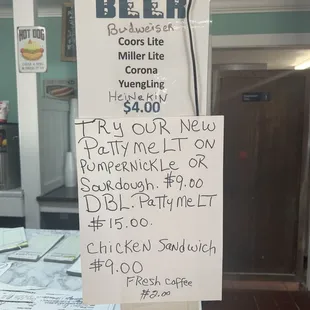 HOT DOG
BEER
Budweiser
Coors Lite
Miller Lite
Corona
YuengLing
Heinekin
$4.00
TRY OUR NEW
PaTTy meLT ON
PumPerNickLe OR
SourDough. $9.00
DBL. PaTTy meLT
$15.00.
CHicKeN SaNDwicH
$9.00
FResH coffee
$2.00